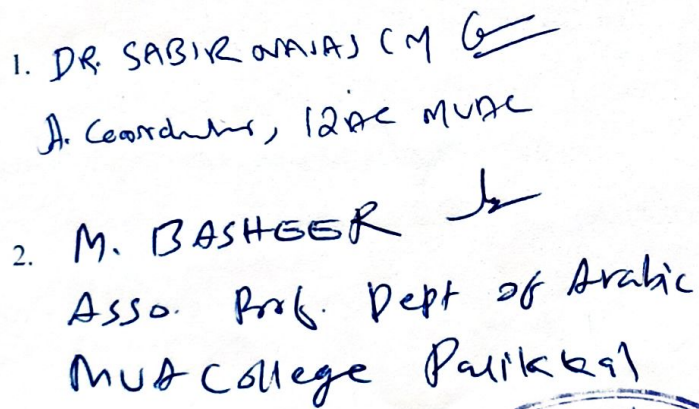 1. DR. SABIR NAVAS CM
A. Coordinator, IQAC MUAC
2. M. BASHEER
Asso. Prof. Dept of Arabic
MUA College Pulikkal